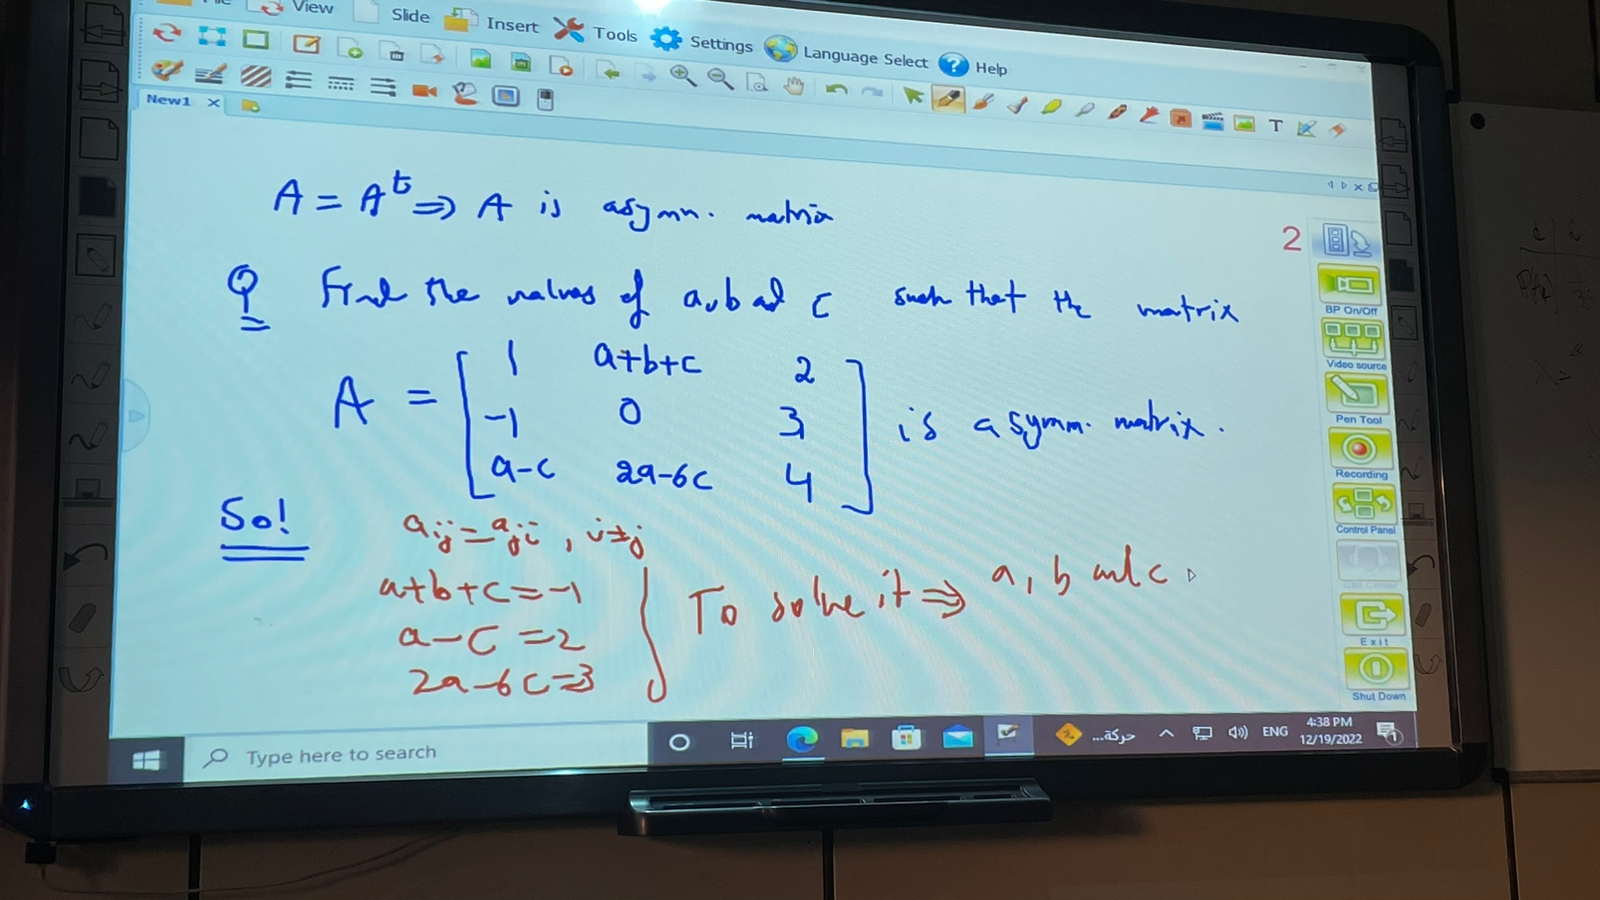 View Slide Insert Tools Settings Language Select Help
New1
A = Aᵗ ⇒ A is a symm. matrix
2
Q Find the values of a, b ad c such that the matrix
A = [ 1 a+b+c 2
-1 0 3
a-c 2a-6c 4 ] is a symm. matrix.
So!
aij = aji, i≠j
a+b+c=-1
a-c=2
2a-6c=3
To solve it ⇒ a, b and c.
BP On/Off
Video source
Pen Tool
Recording
Control Panel
Exit
Shut Down
Type here to search
حركة...
ENG
4:38 PM
12/19/2022
1